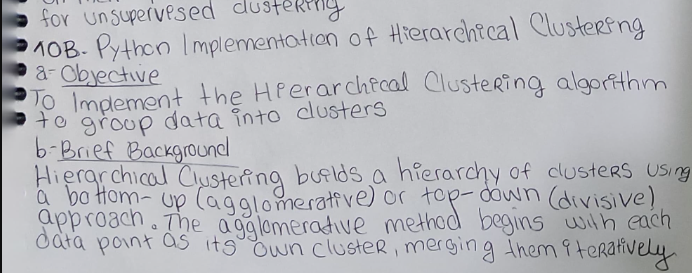 for unsupervesed clustering
10B- Python Implementation of Hierarchical Clustering
a- Objective
To Implement the Hierarchical Clustering algorithm
to group data into clusters
b- Brief Background
Hierarchical Clustering builds a hierarchy of clusters using
a bottom-up (agglomerative) or top-down (divisive)
approach. The agglomerative method begins with each
data point as its own cluster, merging them iteratively